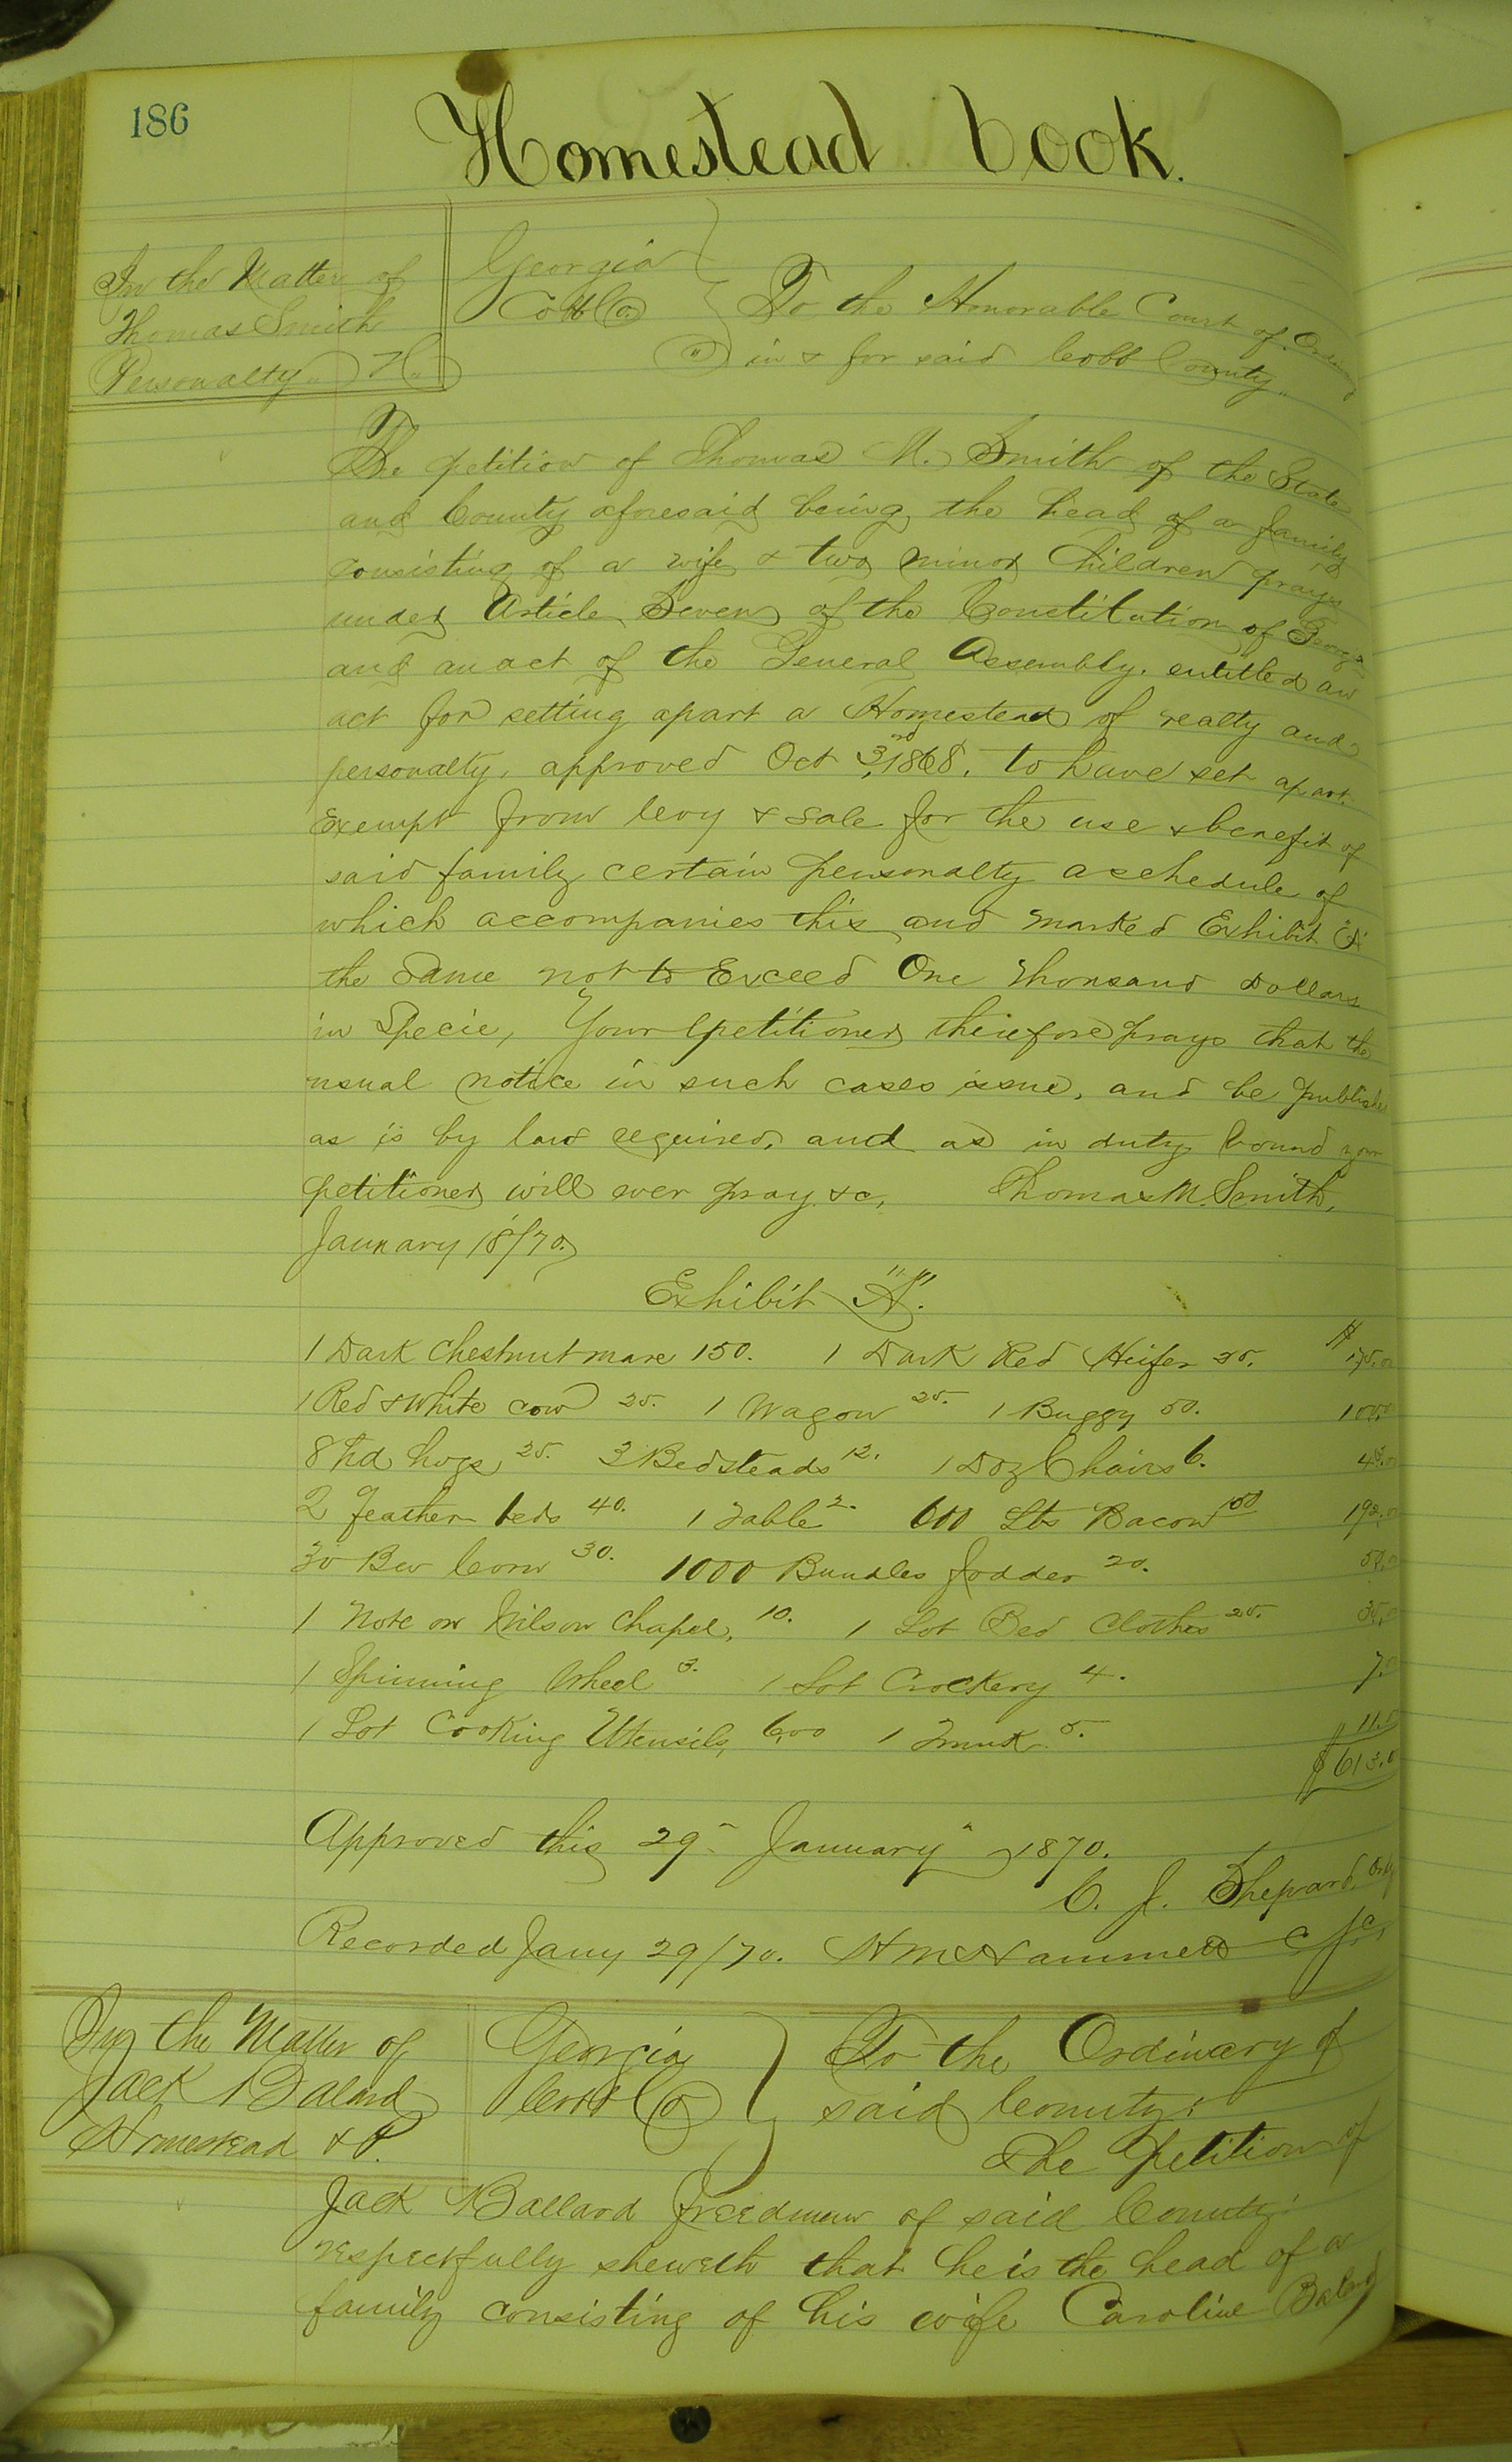 186
Homestead book.
In the Matter of
Thomas Smith
Personalty
Georgia
Cobb Co
To the Honorable Court of
in & for said Cobb County
The petition of Thomas M. Smith of the State
and County aforesaid being the head of a family
consisting of a wife & two minor Children prays
under Article Seven of the Constitution of Georgia
and an act of the General Assembly. entitled an
act for setting apart a Homestead of realty and
personalty, approved Oct 3rd 1868. to have set apart.
Exempt from levy & sale for the use & benefit of
said family certain personalty a schedule of
which accompanies this and marked Exhibit "A"
the Same not to Exceed One Thousand Dollars
in Specie, Your petitioner therefore prays that the
usual notice in such cases issue, and be publish
as is by law required, and as in duty bound your
petitioner will ever pray &c, Thomas M. Smith,
January 18/70.
Exhibit "A".
1 Dark Chestnut mare 150. 1 Dark Red Heifer 25. $175.00
1 Red & White cow 25. 1 Wagon 25. 1 Buggy 50. 100.0
8 hd hogs 25. 3 Bedsteads 12. 1 Doz Chairs 6. 43.00
2 Feather beds 40. 1 Table 2. 600 Lbs Bacon 150 192.00
30 Bu Corn 30. 1000 Bundles fodder 20. 50.00
1 Note on Wilson Chapel, 10. 1 Lot Bed Clothes 25. 35.00
1 Spinning Wheel 3. 1 Lot Crockery 4. 7.00
1 Lot Cooking Utensils, 6.00 1 Trunk 5. 11.00
$613.0
Approved this 29" January 1870.
C. J. Shepard, Ordy
Recorded Jany 29/70. H M Hammett C
In the Matter of
Jack Balard
Homestead & P.
Georgia
Cobb Co
To the Ordinary of
said County:
The Petition of
Jack Ballard Freedman of said County:
respectfully sheweth that he is the head of a
family consisting of his wife Caroline Balard